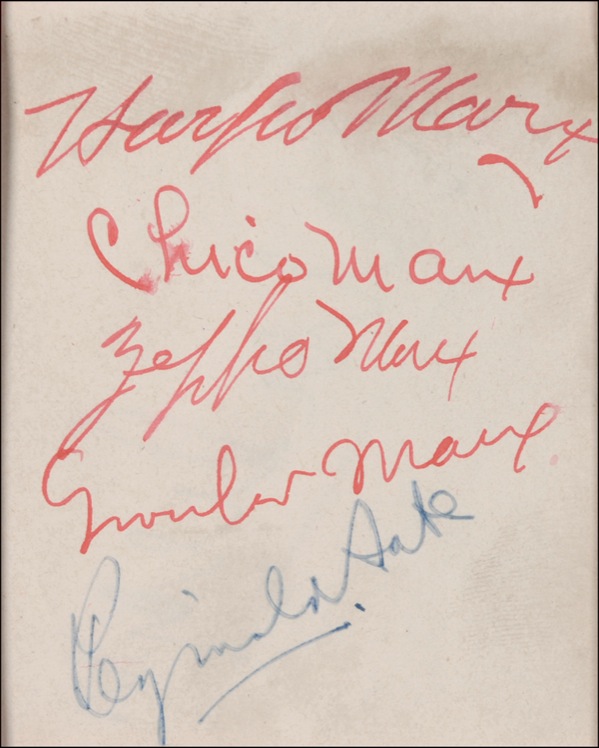 Harpo Marx
Chico Marx
Zeppo Marx
Groucho Marx
Reginald